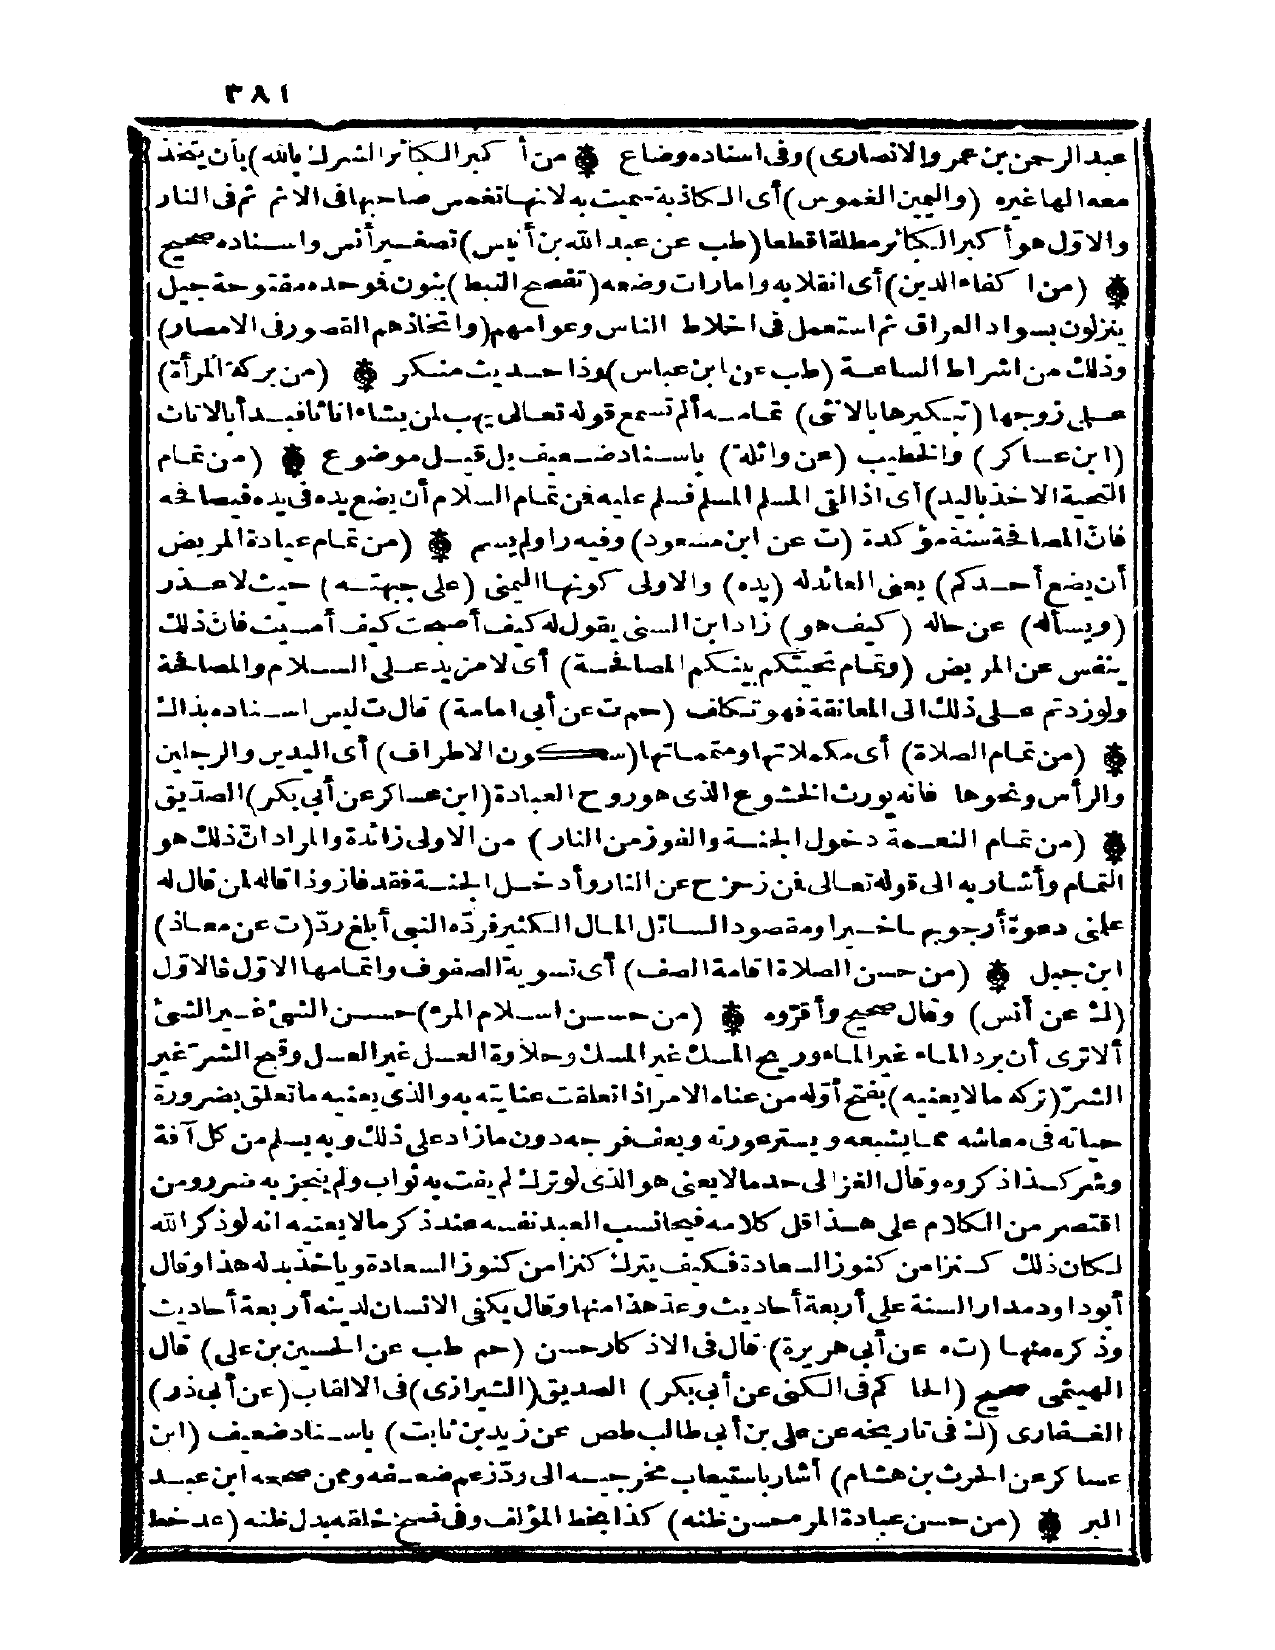 ٣٨١
عبد الرحمن بن عمر والانصارى) وفى اسناده وضاع ۞ من أ كبر الكائر الشرك بالله) بأن يتخذ
معه الها غيره (واليمين الغموس) أى الكاذبة سميت به لانها تغمس صاحبها فى الاثم ثم فى النار
والاوّل هو أكبر الكبائر مطلقا قطعا (طب عن عبد الله بن أنيس) تصغير أنس واسناده صحيح
۞ (من ا كفاء الدين) أى انقلابه وامارات وضعه (تفصح النبط) بنون فوحده مفتوحة جيل
ينزلون بسواد العراق ثم استعمل فى اخلاط الناس وعوامهم (واتخاذهم القصور فى الامصار)
وذلك من اشراط الساعة (طب عن ابن عباس) وذا حديث منكر ۞ (من بركة المرأة)
على زوجها (تبكيرها بالانثى) تمامه ألم تسمع قوله تعالى يهب لمن يشاء اناثا فبدأ بالاناث
(ابن عساكر) والخطيب (عن واثلة) باسناد ضعيف بل قيل موضوع ۞ (من تمام
التحية الاخذ باليد) أى اذا لقى المسلم المسلم فسلم عليه فن تمام السلام أن يضع يده فى يده فيصافحه
فانّ المصافحة سنة مؤكدة (ت عن ابن مسعود) وفيه راو لم يسم ۞ (من تمام عيادة المريض
أن يضع أحدكم) يعنى العائد له (يده) والاولى كونها اليمنى (على جبهته) حيث لا عذر
(ويسأله) عن حاله (كيف هو) زاد ابن السنى يقول له كيف أصبحت كيف أمسيت فانّ ذلك
ينفس عن المريض (وتمام تحيتكم بينكم المصافحة) أى لا مزيد على السلام والمصافحة
ولو زدتم على ذلك الى المعانقة فهو تكلف (حم ت عن أبى امامة) قال ت ليس اسناده بذاك
۞ (من تمام الصلاة) أى مكملاتها ومتمماتها (سكون الاطراف) أى اليدين والرجلين
والرأس ونحوها فانه يورث الخشوع الذى هو روح العبادة (ابن عساكر عن أبى بكر) الصدّيق
۞ (من تمام النعمة دخول الجنة والفوز من النار) من الاولى زائدة والمراد انّ ذلك هو
التمام وأشار به الى قوله تعالى فن زحزح عن النار وأدخل الجنة فقد فاز وذا قاله لمن قال له
علنى دعوة أرجو بها خيرا ومقصود السائل المال الكثير فردّه النبى أبلغ ردّ (ت عن معاذ)
ابن جبل ۞ (من حسن الصلاة اقامة الصف) أى تسوية الصفوف واتمامها الاوّل فالاوّل
(ك عن أنس) وقال صحيح وأقرّوه ۞ (من حسن اسلام المرء) حسن الشئ غير الشئ
ألا ترى أن برد الماء غير الماء وريح المسك غير المسك وحلاوة العسل غير العسل وقبح الشرّ غير
الشرّ (تركه ما لا يعنيه) بفتح أوّله من عناه الامر اذا تعلقت عنايته به والذى يعنيه ما تعلق بضرورة
حياته فى معاشه مما يشبعه ويستر عورته ويعف فرجه دون مازاد على ذلك وبه يسلم من كل آفة
وشر كذا ذكروه وقال الغزالى حد ما لا يعنى هو الذى لو ترك لم يفت به ثواب ولم ينجز به ضرر ومن
اقتصر من الكلام على هذا قل كلامه فيحاسب العبد نفسه عند ذكر ما لا يعنيه انه لو ذكر الله
لكان ذلك كنزا من كنوز السعادة فكيف يترك كنزا من كنوز السعادة ويأخذ بدله هذا وقال
أبو داود مدار السنة على أربعة أحاديث وعدّ هذا منها وقال يكفى الانسان لدينه أربعة أحاديث
وذكره منها (ت ه عن أبى هريرة) قال فى الاذكار حسن (حم طب عن الحسين بن على) قال
الهيثمى صحيح (الحا كم فى الكنى عن أبى بكر) الصديق (الشيرازى) فى الالقاب (عن أبى ذر)
الغفارى (ك فى تاريخه عن على بن أبى طالب طص عن زيد بن ثابت) باسناد ضعيف (ابن
عساكر عن الحرث بن هشام) أشار باستيعاب مخرجيه الى ردّ زعم ضعفه وممن صححه ابن عبد
البر ۞ (من حسن عبادة المرء حسن ظنه) كذا بخط المؤلف وفى نسخ خلقه بدل ظنه (عد خط